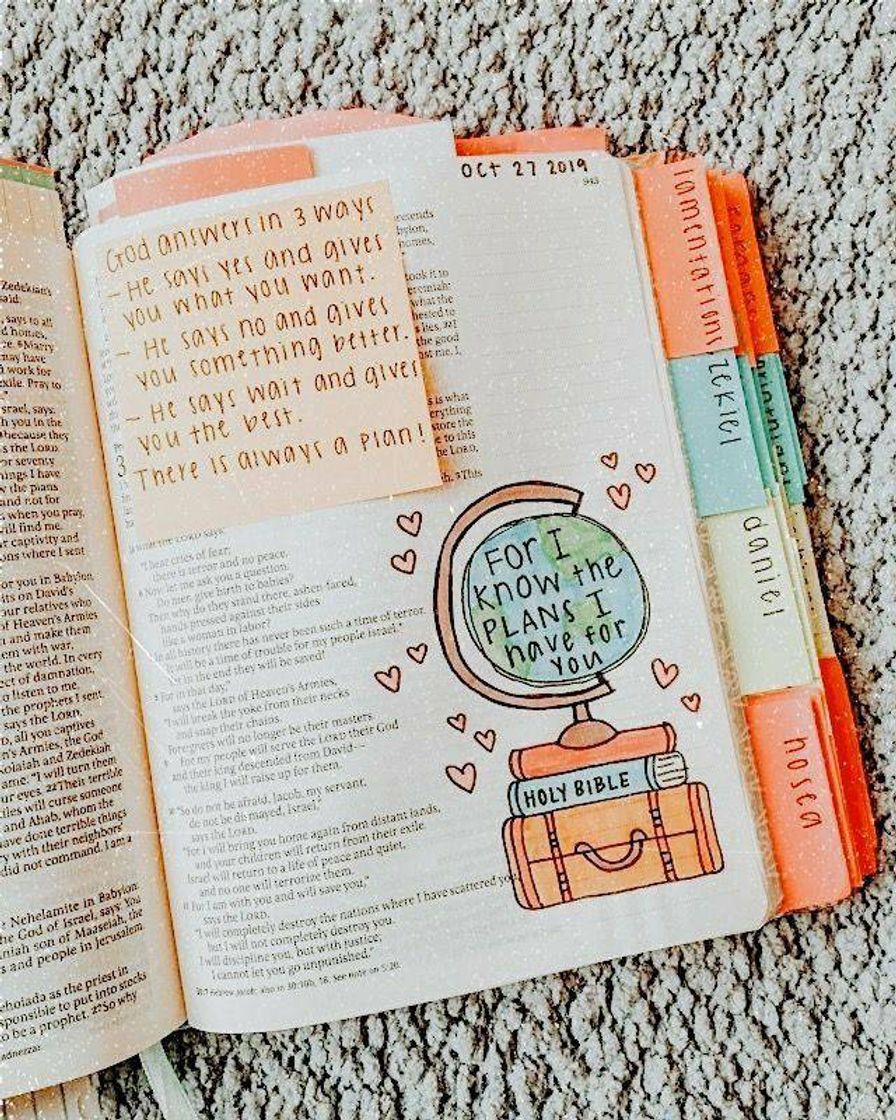 Zedekian's
said:
says to all
d homes,
ce. ⁶Marry
may have
d work for
exile. Pray to
srael, says:
h you in the
because they
s the LORD.
or seventy
hings I have
y the plans
and not for
when you pray,
will find me,
r captivity and
ons where I sent
or you in Babylon.
sits on David's
our relatives who
of Heaven's Armies
n and make them
em with war,
the world. In every
ect of damnation,
to listen to me,
the prophets I sent.
says the LORD.
D, all you captives
n's Armies, the God
Kolaiah and Zedekiah
ame: "I will turn them
ur eyes. ²²Their terrible
tiles will curse someone
and Ahab, whom the
have done terrible things
y with their neighbors'
did not command. I am a
Nehelamite in Babylon:
he God of Israel, says: You
niah son of Maaseiah, the
s and people in Jerusalem.
ehoiada as the priest in
sponsible to put into stocks
to be a prophet. ²⁷So why
OCT 27 2019
943
God answers in 3 ways
- He says yes and gives
you what you want.
- He says no and gives
you something better.
- He says wait and gives
you the best.
There is always a plan!
took it to
what the
the good
is what
erything
store the
e to this
he LORD,
³This
"I hear cries of fear;
there is terror and no peace.
⁶Now let me ask you a question:
Do men give birth to babies?
Then why do they stand there, ashen-faced,
hands pressed against their sides
like a woman in labor?
In all history there has never been such a time of terror.
It will be a time of trouble for my people Israel.*
Yet in the end they will be saved!
⁸For in that day,"
says the LORD of Heaven's Armies,
"I will break the yoke from their necks
and snap their chains.
Foreigners will no longer be their masters.
⁹ For my people will serve the LORD their God
and their king descended from David—
the king I will raise up for them.
¹⁰"So do not be afraid, Jacob, my servant;
do not be dismayed, Israel,"
says the LORD.
"For I will bring you home again from distant lands,
and your children will return from their exile.
Israel will return to a life of peace and quiet,
and no one will terrorize them.
¹¹For I am with you and will save you,"
says the LORD.
"I will completely destroy the nations where I have scattered you,
but I will not completely destroy you.
I will discipline you, but with justice;
I cannot let you go unpunished."
30:7 Hebrew Jacob; also in 30:10b, 18. See note on 5:20.
FOR I
KNOW the
PLANS I
have for
you
HOLY BIBLE
lamentations
zekiel
daniel
hosea